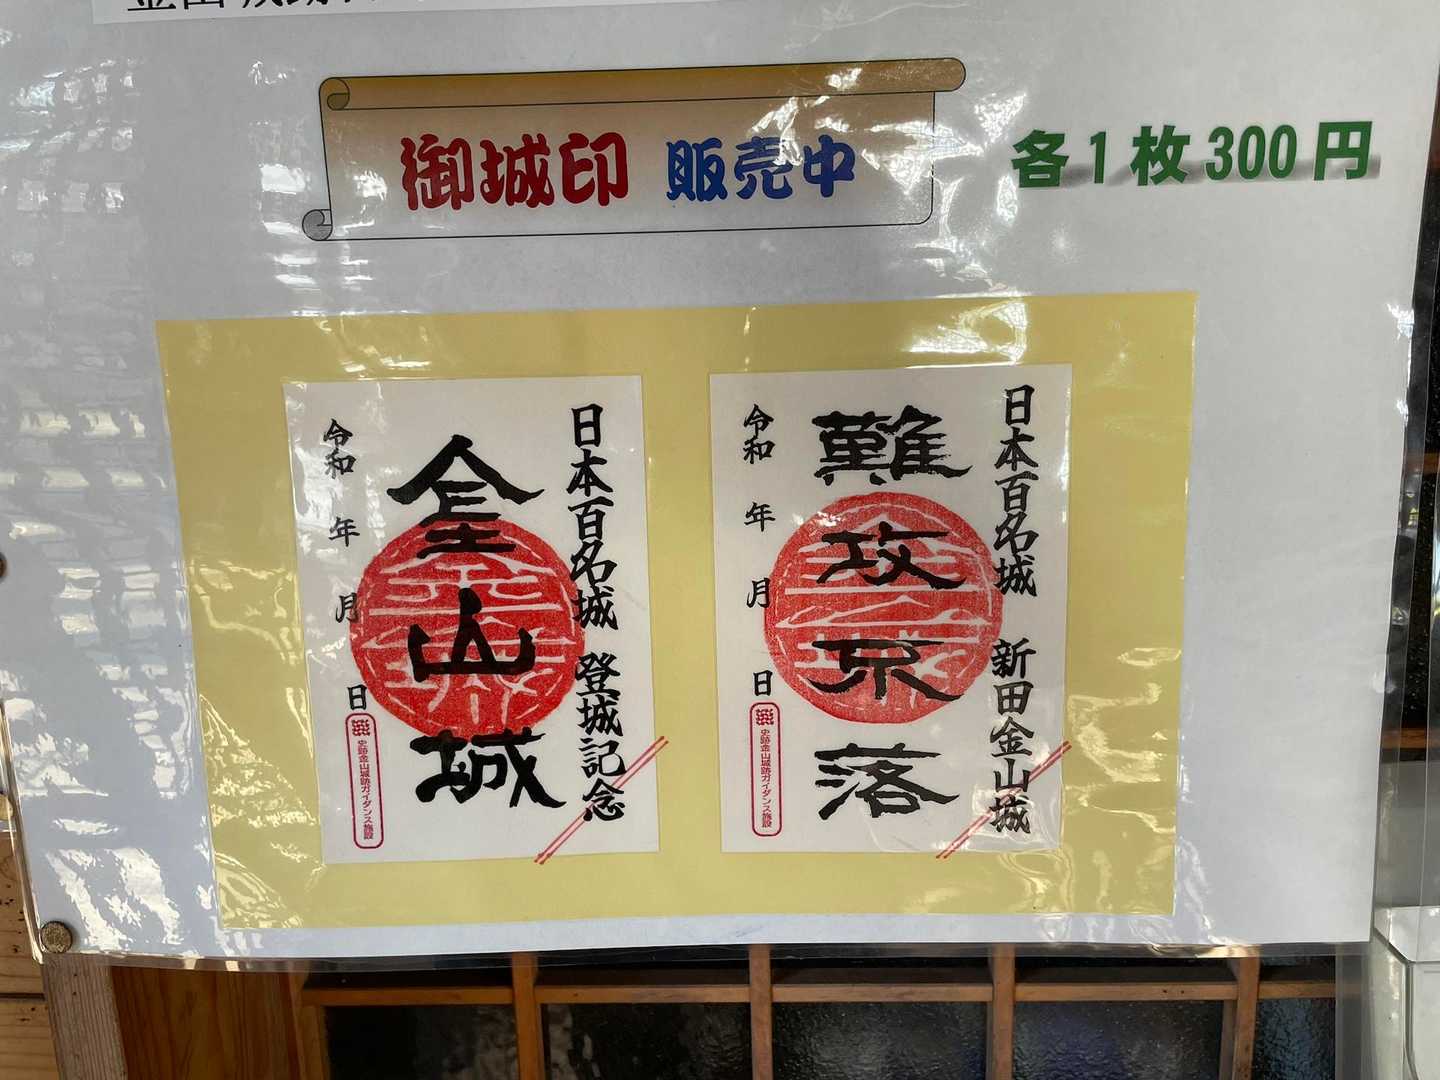 御城印 販売中
各1枚300円
日本百名城 登城記念
金山城
令和 年 月 日
史跡金山城跡ガイダンス施設
日本百名城 新田金山城
難攻不落
令和 年 月 日
史跡金山城跡ガイダンス施設